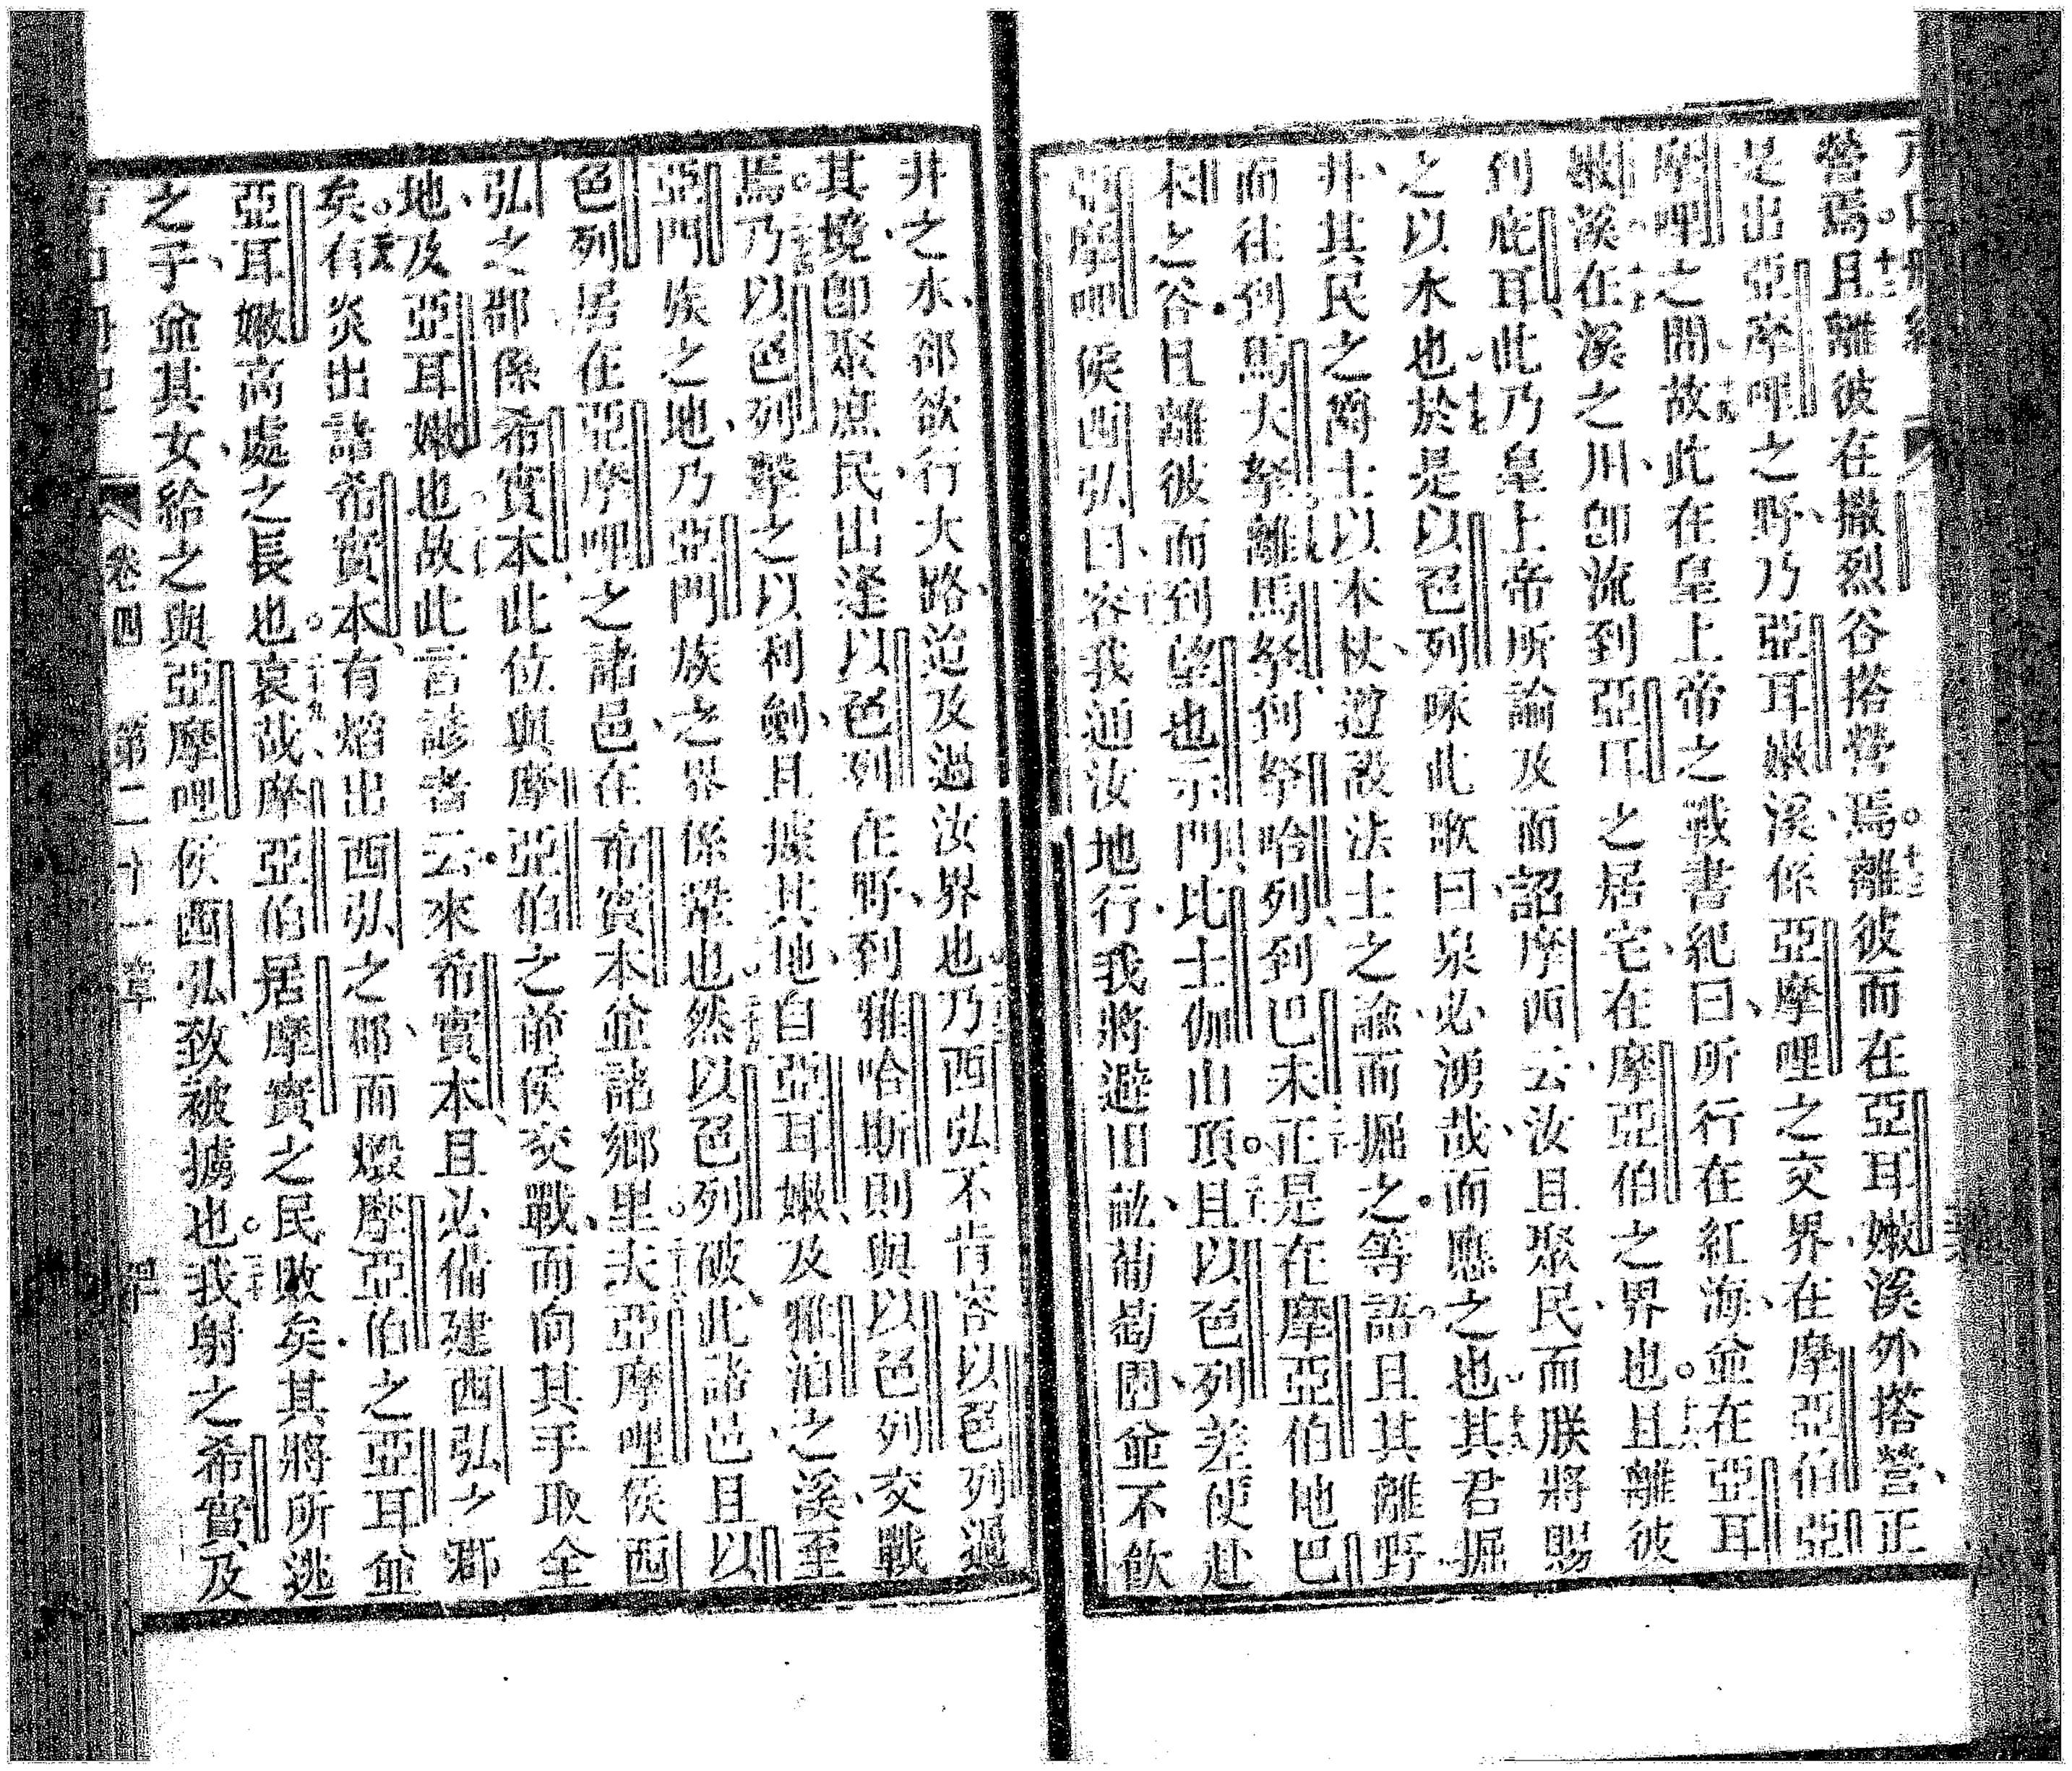 營焉。十二且離彼在撒烈谷搭營焉。十三離彼而在亞耳嫩溪外搭營、正
是出亞摩哩之野、乃亞耳嫩溪、係亞摩哩之交界、在摩亞伯亞
摩哩之間。十四故此在皇上帝之戰書紀曰、所行在紅海、並在亞耳
嫩溪、十五在溪之川、卽流到亞耳之居宅、在摩亞伯之界也。十六且離彼
到庇耳、此乃皇上帝所諭及而詔摩西云、汝且聚民、而朕將賜
之以水也。十七於是以色列咏此歌曰、泉必湧哉、而應之也。十八其君掘
井、其民之爵士以本杖、遵設法士之諭而掘之等語。且其離野
而往到馬大拏、十九離馬拏到拏哈列、到巴末、二十正是在摩亞伯地、巴
末之谷。且離彼而到望也示門、比士伽山頂。二十一且以色列差使赴
亞摩哩侯西弘曰、二十二容我通汝地行、我將避田畝、葡萄園、並不飲
井之水、卻欲行大路、迨及過汝界也。二十三乃西弘不肯容以色列過
其境、卽聚庶民、出逢以色列在野、到雅哈斯、則與以色列交戰
焉。二十四乃以色列擊之以利劍、且據其地、自亞耳嫩、及雅泊之溪、至
亞門族之地、乃亞門族之界係鞏也。二十五然以色列破此諸邑、且以
色列居在亞摩哩之諸邑、在希實本並諸鄉里。二十六夫亞摩哩侯西
弘之郡係希實本、此位與摩亞伯之前侯交戰、而向其手取全
地、及亞耳嫩也。二十七故此言諺者云、來希實本、且必備建西弘之郡
矣。二十八有炎出諸希實本、有焰出西弘之郡、而燬摩亞伯之亞耳、並
亞耳嫩高處之長也。二十九哀哉摩亞伯、居摩實之民敗矣。其將所逃
之子、並其女、給之與亞摩哩侯西弘、致被擄也。三十我射之、希實、及
卷四 第二十一章